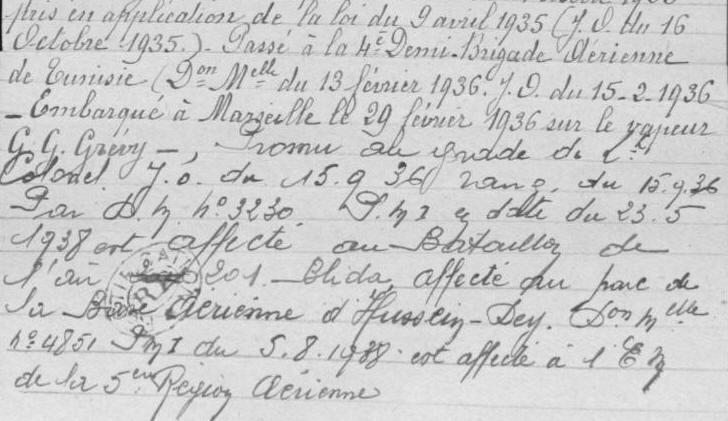 pris en application de la loi du 9 avril 1935 (J.O. du 16
Octobre 1935.) - Passé à la 4e Demi-Brigade Aérienne
de Tunisie (Don Melle du 13 février 1936. J.O. du 15-2-1936
- Embarqué à Marseille le 29 février 1936 sur le vapeur
G.G. Grévy -, Promu au grade de Lt
Colonel J.O. du 15.9.36 rang du 15.9.36
Par D.M. no 3230 du 23.5
1938 est affecté au Bataillon de
l'air 201 - Blida, affecté au parc de
la Base Aérienne d'Hussein-Dey. Don Melle
no 4851 du 5.8.1938 est affecté à l'E M
de la 5em Région Aérienne